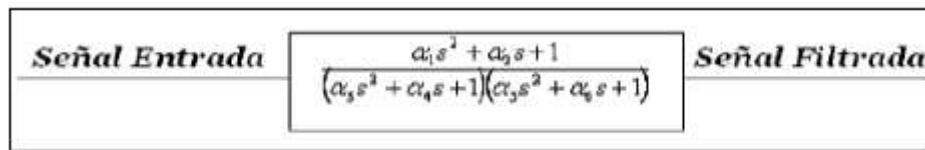 Señal Entrada
α₁s² + α₂s + 1
(α₃s² + α₄s + 1)(α₅s² + α₆s + 1)
Señal Filtrada